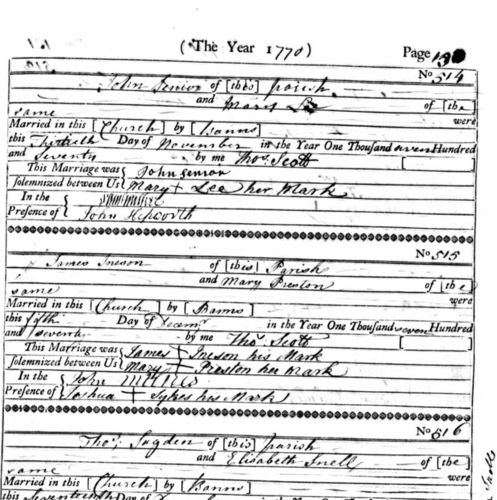 ( The Year 1770 ) Page
No 514
John Senior of [this] parish
and Mary Lee of [the
same were
Married in this [Church] by [Banns]
this Thirtieth Day of November in the Year One Thousand seven Hundred
and Seventy by me Thos. Scott [ ]
This Marriage was { John Senior
Solemnized between Us { Mary + Lee her Mark
In the {
Presence of { John Hepworth
No 515
James Ineson of [this] Parish
and Mary Preston of [the
same were
Married in this [Church] by [Banns]
this fifth Day of Decemr in the Year One Thousand seven Hundred
and Seventy by me Thos. Scott [ ]
This Marriage was { James + Ineson his Mark
Solemnized between Us { Mary + Preston her Mark
In the { John
Presence of { Joshua + Sykes his Mark
No 516
Thos. Sugden of [this] parish
and Elisabeth Snell of [the]
same were
Married in this [Church] by [Banns]
this Seventeenth Day of in the Year One Thousand Hundred